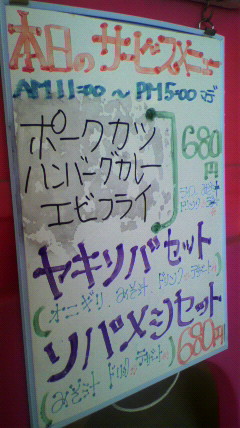 本日のサービスメニュー
AM11:00 ~ PM5:00迄
ポークカツ
ハンバーグカレー
エビフライ
680円
ヤキソバセット
(オニギリ、みそ汁、ドリンク、デザート付)
ソバメシセット
(みそ汁、ドリンク、デザート付) 680円